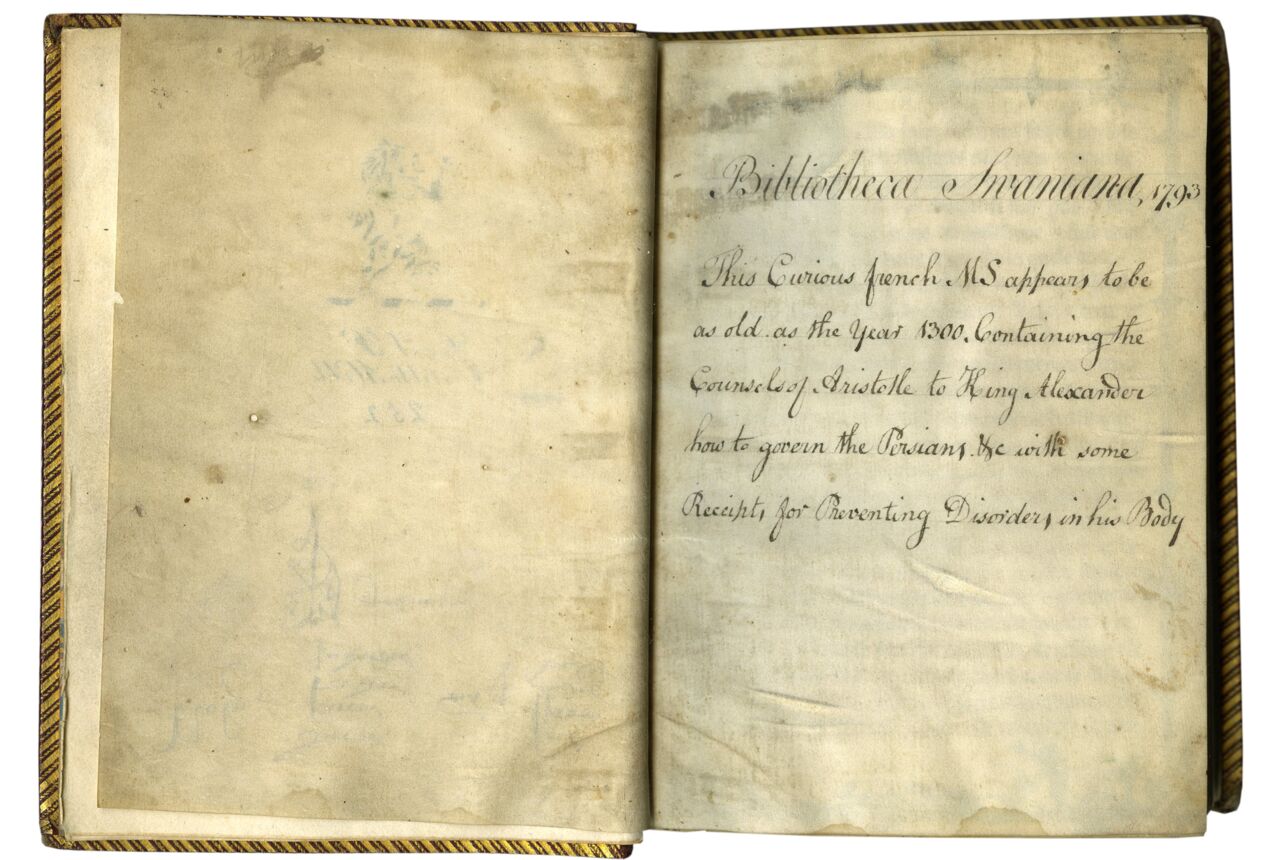 Bibliotheca Swaniana, 1793
This Curious french MS appears to be
as old as the Year 1300. Containing the
Counsels of Aristotle to King Alexander
how to govern the Persians. &c with some
Receipts for Preventing Disorders in his Body